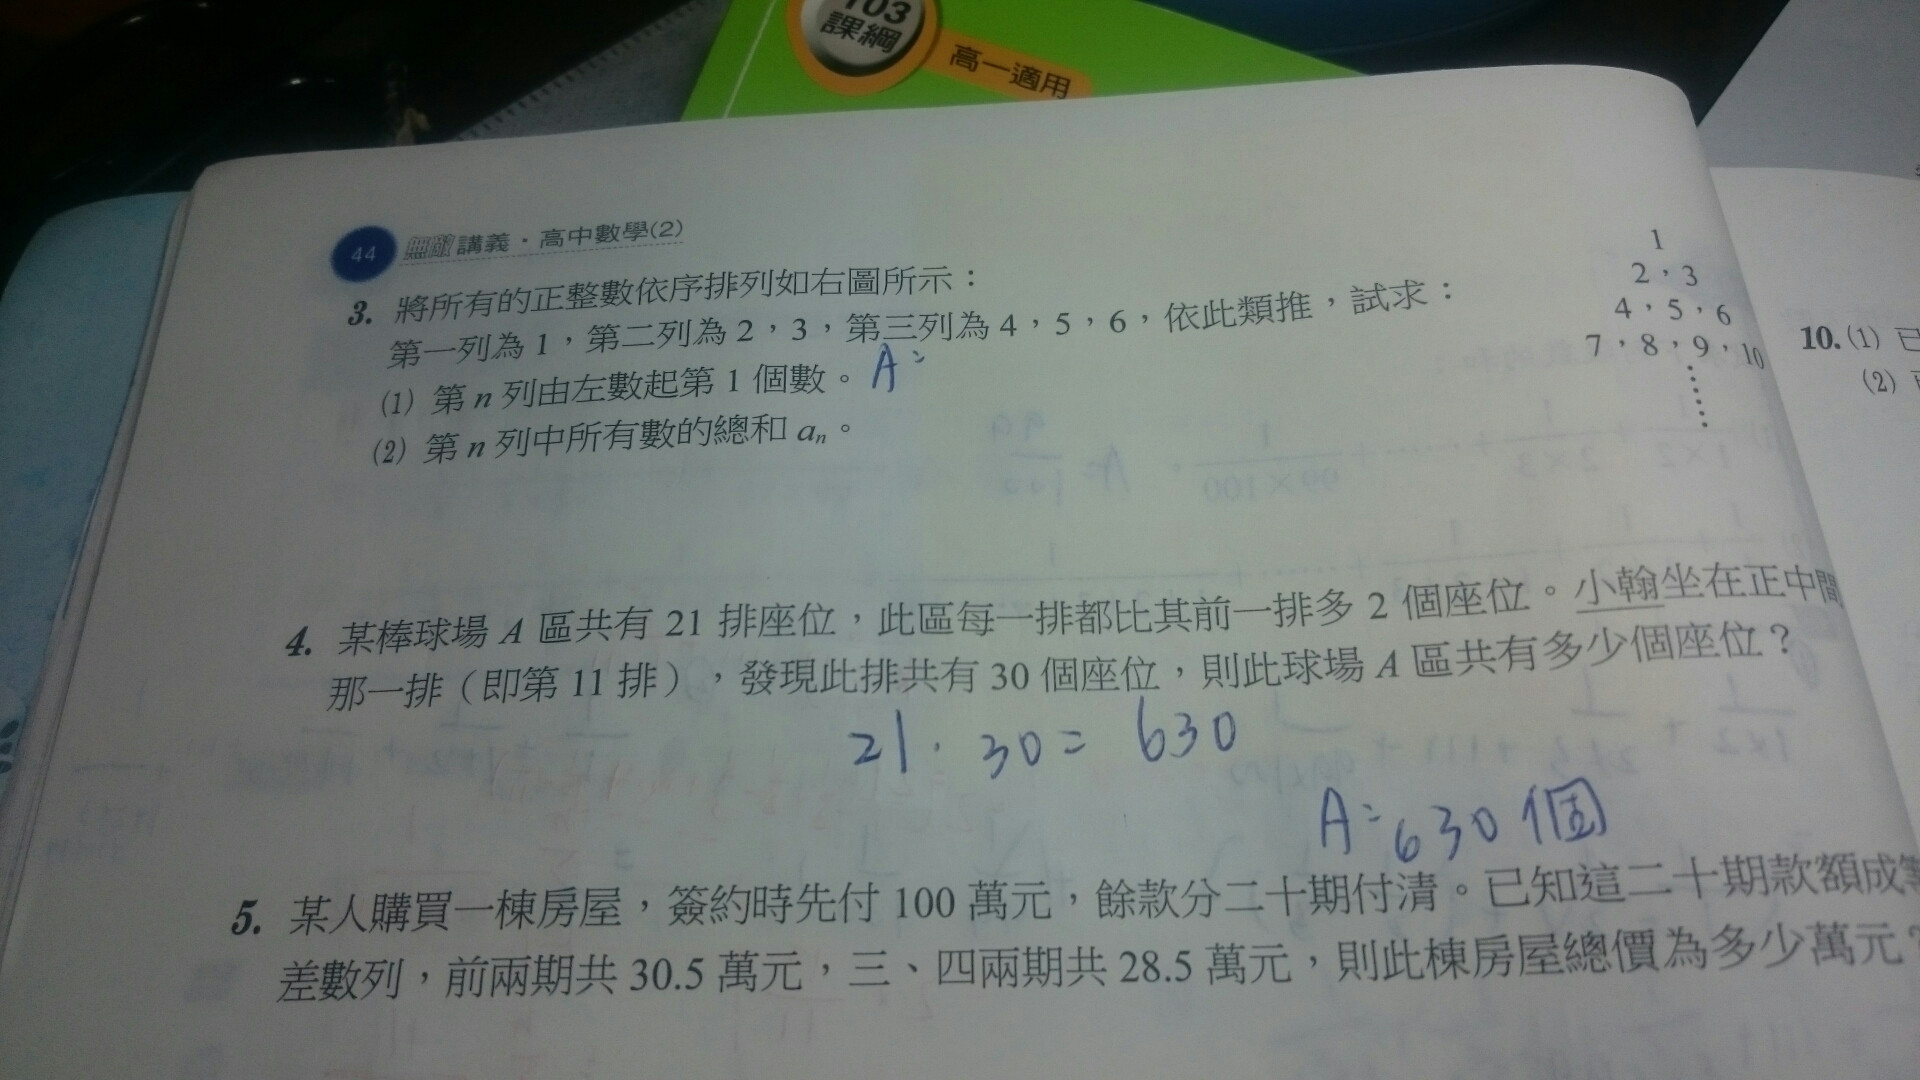 103
課綱
高一適用
44 無敵講義・高中數學(2)
3. 將所有的正整數依序排列如右圖所示：
第一列為 1，第二列為 2，3，第三列為 4，5，6，依此類推，試求：
(1) 第 n 列由左數起第 1 個數。 A:
(2) 第 n 列中所有數的總和 aₙ。
1
2，3
4，5，6
7，8，9，10
⋮
4. 某棒球場 A 區共有 21 排座位，此區每一排都比其前一排多 2 個座位。小翰坐在正中間
那一排（即第 11 排），發現此排共有 30 個座位，則此球場 A 區共有多少個座位？
21 · 30 = 630
A: 630 個
5. 某人購買一棟房屋，簽約時先付 100 萬元，餘款分二十期付清。已知這二十期款額成等
差數列，前兩期共 30.5 萬元，三、四兩期共 28.5 萬元，則此棟房屋總價為多少萬元？
10. (1) 已
(2)